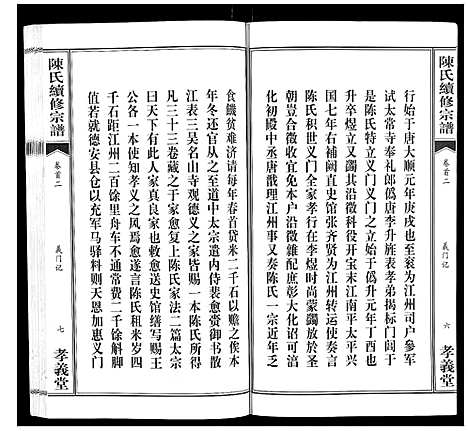 陳氏續修宗譜
卷首二
義门记
六
孝義堂
行始于唐大顺元年庚戌也至衮为江州司户參军
试太常寺奉礼郎僞唐李升旌表孝弟揭标门闾于
是陈氏特立义门义门之立始于僞升元年丁酉也
升卒煜立又蠲其沿徵科役开宝末江南平太平兴
国七年右補阙直史馆张齐贤为江州转运使奏言
陈氏积世义门全家孝行在李煜时尚蒙蠲放於圣
朝豈合徵沿宜免本户沿徵雜配庶彰大化诏可淳
化初殿中丞唐戬理江州事又奏陈氏一宗近年乏
食饑贫难济请每年春首贷米二千石以赡之俟本
年冬还官从之至道中太宗遣内侍裴愈赍御书散
江表三吴名山寺观德义之家皆赐一本陈氏所得
凡三十三卷藏之于家愈复上陈氏家法二篇太宗
曰天下有此人家真良家也敕愈送史馆缮写三
公各一本使知孝义之风焉愈遂言陈氏租米岁四
千石距江州二百馀里舟车不通常费二千馀斛脚
值若就德安县仓以充军马驛料则天恩加惠义门
陳氏續修宗譜
卷首二
義门记
七
孝義堂